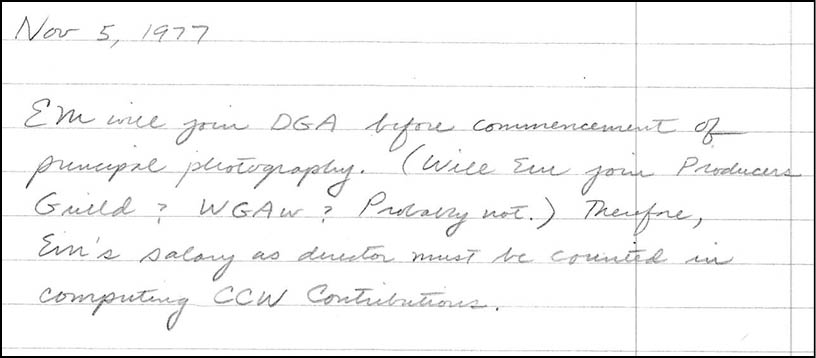 Nov 5, 1977
EM will join DGA before commencement of
principal photography. (Will Em join Producers
Guild? WGAw? Probably not.) Therefore,
Em's salary as director must be counted in
computing CCW Contributions.